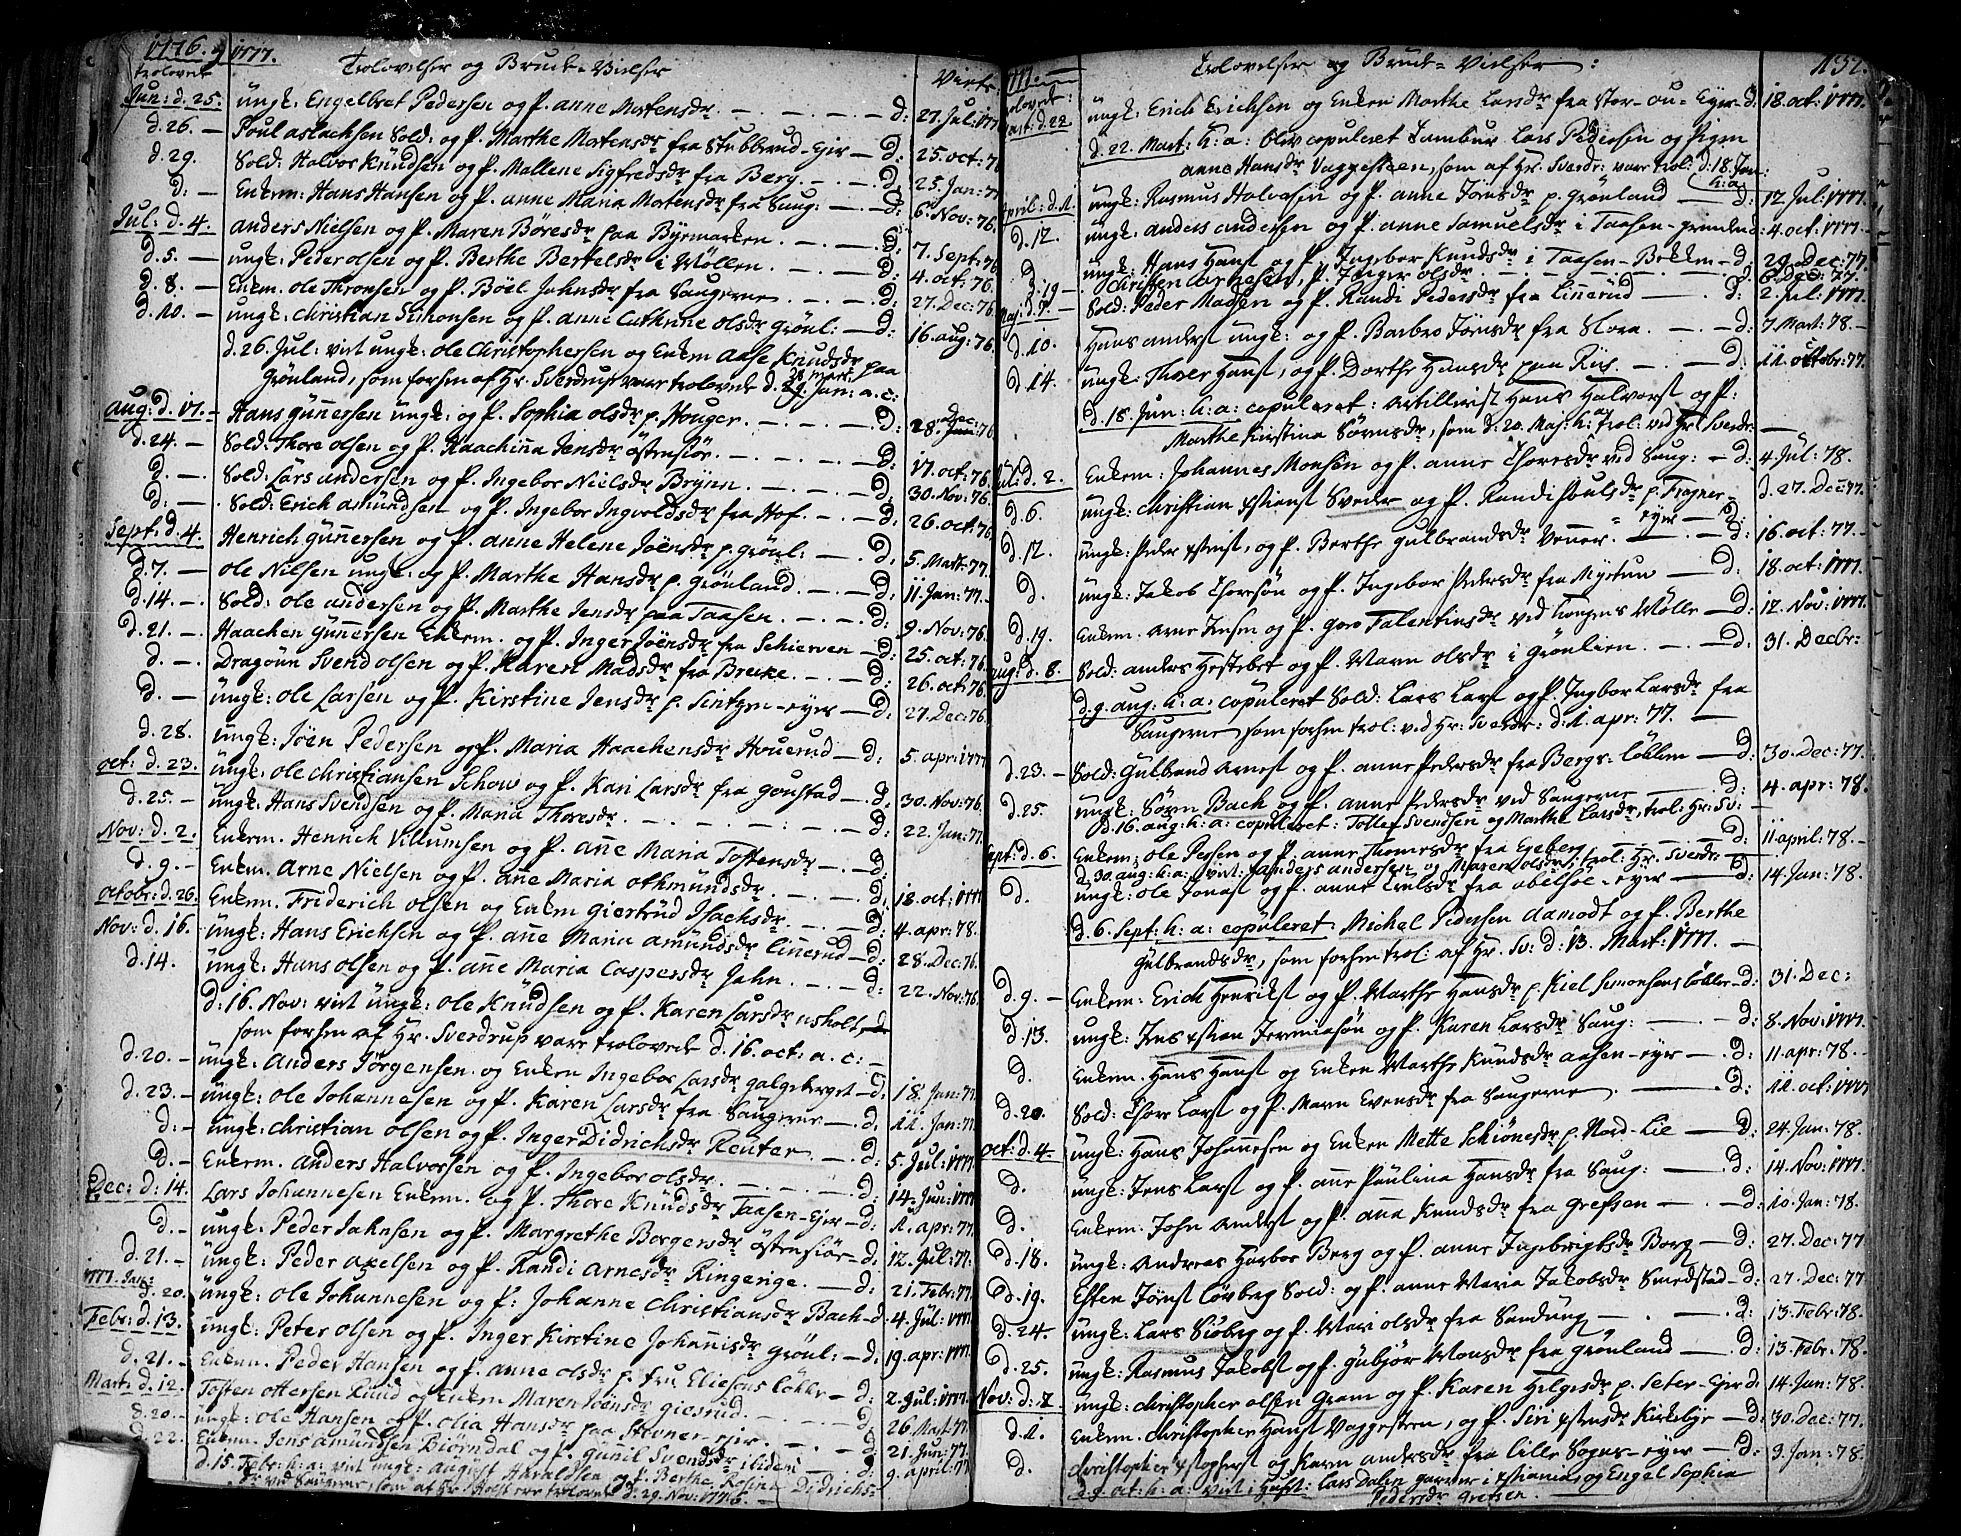 1776. og 1777. Trolovelser og Brude-Vielser Viet:
trolovede
Jun: d. 25. ungk. Engelbret Pedersen og P. anne Mortensdr — d: 27. Jul: 177
d. 26. — Poul aslachsen Sold: og P. Marthe Mortensdr fra Stubberud-Eier — d: 25. oct: 76
d. 29. Sold: Halvor Knudsen og P. Mallene Sigfredsdr fra Berg. — d: 25. Jan: 77
d: — Enkem: Hans Hansen og P. anne Maria Mortensdr fra Saug: — d: 6. Nov: 76.
Jul: d. 4. anders Nielsen og P. Maren Böresdr paa Byemarken — d: 7. Sept: 76
d. 5. — ungk. Peder olsen og P. Berthe Bertelsdr i Möllen — d: 4. oct: 76.
d. 8. — Enkem. ole Thronsen og P. Böel Johnsdr fra Saugerne — d: 27. Dec: 76.
d. 10. — ungk. Christian Simonsen og P. anne Cathrine olsdr Grönl: — d: 16. aug: 76.
d. 26. Jul: viet ungk: ole Christophersen og Enken Aase Knudsdr paa
Grönland, som forhen af Hr. Sverdrup vare trolovede d. 28 Mart: a: c:
Aug: d. 17. — Hans Gunnersen ungk: og P. Sophia olsdr p. Houger. — d: 28. Dec: 76
d. 24. — Sold: Thore olsen og P. Haachinna Jensdr östensiör. — d: 17. oct: 76.
d. — Sold: Lars andersen og P. Ingebor Nielsdr Brynn. — d: 30. Nov: 76.
d: — Sold: Erich amundsen og P. Ingebor Ingvoldsdr fra Hof. — d: 26. oct: 76
Sept: d. 4. Henrich Gunnersen og P. anne Helene Joensdr p. Grönl: — d: 5. Mart: 77.
d. 7. — ole Nilsen ungk: og P. Marthe Hansdr p. Grönland. — d: 11. Jan: 77. —
d. 14. — Sold: ole andersen og P. Marthe Jensdr paa Taasen. — d: 9. Nov: 76.
d. 21. — Haachen Gunnersen Enkem. og P. Inger Joensdr fra Schierven — d: 25. oct: 76.
d. — Dragoun Svend olsen og P. Karen Madsdr fra Breke. — d: 26. oct: 76.
d. — ungk: ole Larsen og P. Kirstine Jensdr p. Sintzen-eyer — d: 27. Dec: 76.
d. 28. ungk: Joen Pedersen og P. Maria Haachensdr Houerud — d: 5. apr: 1777
oct: d. 23. ungk: ole Christiansen Schow og P. Kari Larsdr fra Goustad — d: 30. Nov: 76.
d. 25. — ungk: Hans Svendsen og P. Maria Thoresdr — d: 22. Jan: 77
Nov: d. 2. Enkem. Henrich Villumsen og P. anne Maria Tostensdr — d:
d. 9. — Enkem. Arne Nielsen og P. anne Maria othmundsdr — d: 18. oct: 1777
octobr: d. 26. Enkem. Friderich olsen og Enkem Giertrud Isachsdr — d: 4. apr: 78.
Nov: d. 16. — ungk: Hans Erichsen og P. anne Maria amundsdr Linnerud — d: 28. Dec: 76.
d. 14. ungk: Hans olsen og P. anne Maria Caspersdr Jahn. — d: 22. Nov: 76.
d: 16. Nov: viet ungk: ole Knudsen og P. Karen Larsdr usholt,
som forhen af Hr. Sverdrup vare trolovede d. 16. oct: a. c: —
d. 20. — ungk: Anders Jörgensen og Enken Ingebor Larsdr galgeberget — d: 18. Jan: 77
d. 23. — ungk: ole Johannesen og P. Karen Larsdr fra Saugerne — d: 11. Jan: 77
d: — ungk: Christian olsen og P. Inger Didrichsdr Reuter. — d: 5. Jul: 1777.
d. — Enkem. Anders Halvorsen og P. Ingebor olsdr. — d: 14. Jun: 1777
Dec: d: 14. Lars Johannesen Enkem. og P. Thore Knudsdr Taasen-Ejer — d: 1. apr: 77.
d. — ungk: Peder Jahnsen og P. Margrethe Borgersdr östensiör — d: 12. Jul: 77.
d. 21. — ungk: Peder axelsen og P. Randi Arnesdr Ringerige. — d: 21. Febr: 77.
1777. Jan: d. 20. ungk: ole Johannesen og P: Johanne Christiansdr Bach — d 4. Jul: 1777
Febr: d. 13. ungk: Peter olsen og P. Inger Kirstine Johannisdr Grönl: — d: 19. apr: 1777.
d. 21. — Enkem. Peder Hansen og P. anne olsdr p. fru Eliesons Lökke — d: 2. Jul: 1777.
Mart: d. 12. Tosten ottersen Ruud og Enkem Maren Joensdr giesrud. — d: 26 Mart 77.
d. 20. — ungk: ole Hansen og P. olia Hansdr paa Stovner-ejer. — d: 21. Jun: 77.
d. 22. Enkem. Jens amundsen Biörndal og P. Gunnil Svendsdr i Liden — d: 9. april: 77
d. 15. Febr: h: a: viet ungk: August Haraldsen og P. Berthe Rosina Didrichs-
dr ved Saugerne, som af Hr. Holst ere trolovede d. 29. Nov: 1776. —
1777. — Trolovelser og Brude-Vielser: 132.
trolovet:
Mart: d. 22. ungk: Erich Erichsen og Enken Marthe Larsdr fra Stor-ou-Eyer d. 18. oct: 1777.
d. 22. Mart: h: a: blev copuleret Tambur Lars Pedersen og Pigen
anne Hansdr Vaggesteen, som af Hr. Sverdr: vare trol: d. 18. Jan:
April: d. 1. ungk: Rasmus Halvorsen og P. anne Jörnsdr p. Grönland — d: 12 Jul: 1777.
d. 12. ungk: anders andersen og P. anne Samuelsdr i Taasen-grenden d: 4. oct: 1777.
ungk: Hans Hanst og P. Ingebor Knudsdr i Taasen-Bekken — d: 29. Dec: 77.
d. 19 — Christen arnesen, P. Inger olsdr — d: 6 Dec: 77.
Maj: d. 7. — Sold: Peder Madsen og P. Randi Pedersdr fra Linnerud — d: 2. Jul: 1777.
d. 10. Hans anderst ungk: og P. Barbro Jörnsdr fra Flora. — d: 7. Mart: 78. —
d. 14. ungk: Thoer Hanst, og P. Dorthe Hansdr paa Riis. — d: 11. octobr: 77.
d. 18. Jun: h: a: copuleret: Artillerist Hans Halvorst og P:
Marthe Kirstina Sörensdr, som d. 20. Maj: h: a trol: ved Hr Sverdr: —
Jul: d. 2. Enkem: Johannes Monsen og P. anne Thoresdr ved Saug: — d: 4. Jul: 78.
d. 6. ungk: Christian xstianst Sveder og P. Randi Poulsdr p. Frogner-
eyer — d: 27. Dec: 77.
d. 12. ungk: Peder xstenst, og P. Berthe Gulbrandsdr Venner. — d: 16. oct: 77. —
d. ungk: Jakob Thorsön og P. Ingebor Pedersdr fra Myrtun — d: 18. oct: 1777.
d. 19. Enkem. Arne Jensen og P. Goro Falentinsdr ved Kongens Mölle — d: 12. Nov: 1777.
aug: d. 8. Sold: anders Hestebet og P. Maren olsdr i Grönlien. — d: 31. Decbr:
d. 9. aug: h: a: copuleret Sold: Lars Larst og P. Ingbor Larsdr fra
Saugerne som forhen trol: ved Hr: Sverdr: d: 1. apr: 77. —
d. 23. — Sold: Gulbrand Arnest og P. anne Pedersdr fra Bergs-Lökken — d: 30. Dec: 77.
d. 25. ungk: Sören Bach og P. anne Pedersdr ved Saugerne — d: 4. apr: 78.
d. 16. aug: h: a: copuleret: Tollef Svendsen og Marthe Larsdr, trol: Hr: Sv: —
Sept: d. 6. Enkem: ole Persen og P. anne Thomesdr fra Egeberg — d: 11 april: 78. —
d. 30. aug: h: a: viet: anders andersen og Maren olsdr, trol: Hr. Sverdr: —
d. ungk: ole Jonast og P. anne Truelsdr fra abelsöe-eyer — d: 14. Jan: 78.
d. 6. Sept: h: a: copuleret Michel Pedersen aamodt og P. Berthe
Gulbrandsdr, som forhen trol: af Hr. Sv: d: 13. Mart: 1777. —
d. 9. — Enkem: Erich Henrikst og P. Marthe Hansdr p. Kiel Simonsens Lökke — d: 31. Dec:
d. 13. ungk: Jens xstian Jermiasön og P. Karen Larsdr Saug: — d: 8. Nov: 1777.
d. Enkem. Hans Hanst og Enken Marthe Knudsdr aasen-eyer — d: 11. apr: 78. —
d. 20. Sold: Thore Larst og P. Maren Evensdr fra Saugerne — d: 11. oct: 1777
oct: d. 4. ungk: Hans Johannesen og Enken Mette Schiönesdr p. Nord-Lie — d: 24. Jan: 78.
d. ungk: Jens Larst og P. anne Paulina Hansdr fra Saug: — d: 14. Nov: 1777.
d. Enkem: John Anderst og P. anna Knudsdr fra Grefsen — d: 10. Jan: 78.
d. 18. ungk: Andreas Harboe Berg og P. anne Ingebrigtsdr Borg — d: 27. Dec: 77
d. 19. Esten Jörnst Lövberg Sold: og P. anne Maria Jakobsdr Smedstad — d: 27. Dec: 77
d. 24. — ungk: Lars Siöberg og P. Mari olsdr fra Sandung — d: 13. Febr: 78.
d. 25. ungk: Rasmus Jakobst og P. Gubjör Monsdr fra Grönland — d: 13. Febr: 78.
Nov: d: 1. ungk: Christopher olsen Gram og P. Karen Helgesdr p. Seter-Ejer d: 14. Jan: 78.
d. 1. Enkem. Christopher Hanst Vaggesteen, og P. Siri xstensdr Kirkebye — d: 30. Dec: 77.
d. Christopher xstopherst og Karen andersdr fra Lille Sogns-eyer — d: 9. Jan: 78.
d. 9. oct: h: a: viet i Huset: Lars Dalen gartner i xstiania, og Engel Sophia
Pedersdr Grefsen.